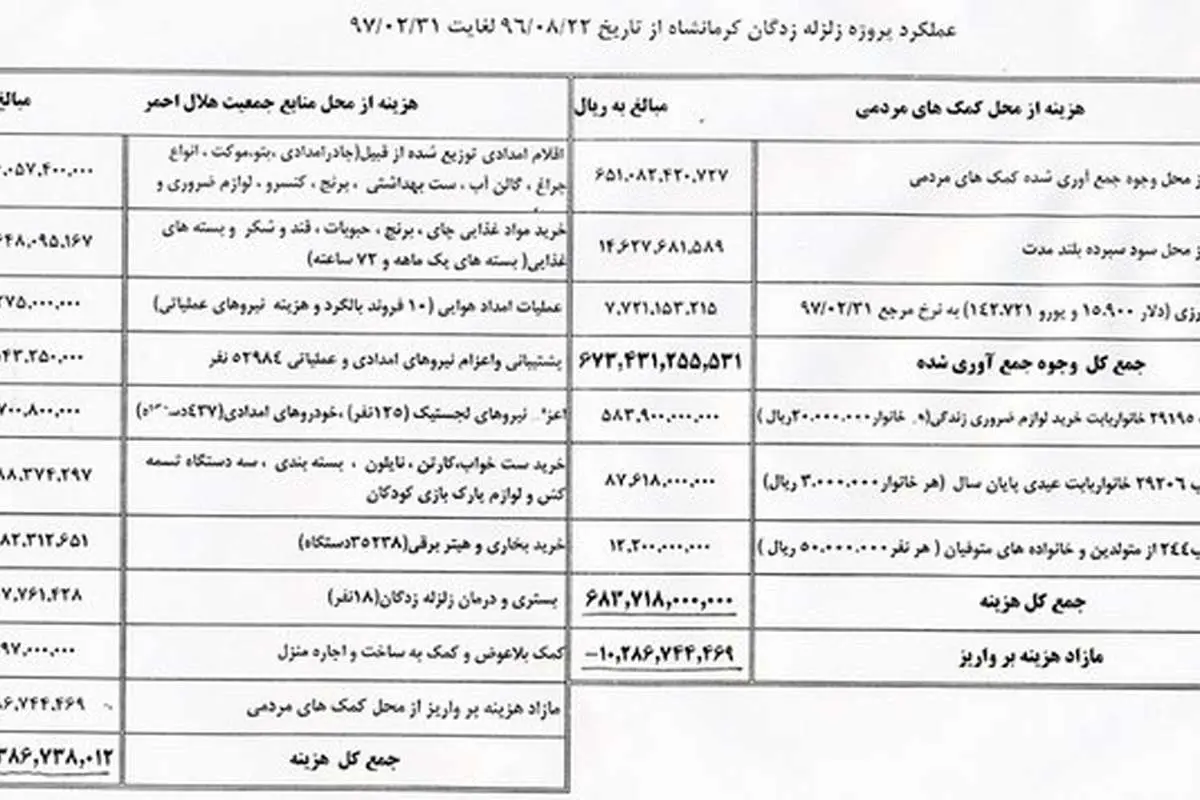 عملکرد پروژه زلزله زدگان کرمانشاه از تاریخ ۹۶/۰۸/۲۲ لغایت ۹۷/۰۲/۳۱
هزینه از محل کمک های مردمی
مبالغ به ریال
از محل وجوه جمع آوری شده کمک های مردمی
۶۵۱,۰۸۲,۴۲۰,۷۲۷
از محل سود سپرده بلند مدت
۱۴,۶۲۷,۶۸۱,۵۸۹
(دلار ۱۵.۹۰۰ و یورو ۱۴۲.۷۲۱) به نرخ مرجع ۹۷/۰۲/۳۱
۷,۷۲۱,۱۵۳,۲۱۵
جمع کل وجوه جمع آوری شده
۶۷۳,۴۳۱,۲۵۵,۵۳۱
۲۹۱۹۵ خانواربابت خرید لوازم ضروری زندگی( خانوار۲۰.۰۰۰.۰۰۰ریال)
۵۸۳,۹۰۰,۰۰۰,۰۰۰
۲۹۲۰۶ خانواربابت عیدی پایان سال (هر خانوار۳.۰۰۰.۰۰۰ ریال)
۸۷,۶۱۸,۰۰۰,۰۰۰
۲۴۴ از متولدین و خانواده های متوفیان ( هر نفر۵۰.۰۰۰.۰۰۰ ریال )
۱۲,۲۰۰,۰۰۰,۰۰۰
جمع کل هزینه
۶۸۳,۷۱۸,۰۰۰,۰۰۰
مازاد هزینه بر واریز
-۱۰,۲۸۶,۷۴۴,۴۶۹
هزینه از محل منابع جمعیت هلال احمر
مبالغ
اقلام امدادی توزیع شده از قبیل(چادرامدادی ،پتو،موکت ، انواع
چراغ ، گالن آب ، ست بهداشتی ، برنج ، کنسرو ، لوازم ضروری و
,۰۵۷,۴۰۰,۰۰۰
خرید مواد غذایی چای ، برنج ، حبوبات ، قند و شکر و بسته های
غذایی( بسته های یک ماهه و ۷۲ ساعته)
۶۴۸,۰۹۵,۱۶۷
عملیات امداد هوایی (۱۰ فروند بالگرد و هزینه نیروهای عملیاتی)
۲۷۵,۰۰۰,۰۰۰
پشتیبانی واعزام نیروهای امدادی و عملیاتی ۵۲۹۸۴ نفر
۴۳,۲۵۰,۰۰۰
نیروهای لجستیک (۱۲۵نفر) ،خودروهای امدادی(۴۳۷دستگاه)
۷۰۰,۸۰۰,۰۰۰
خرید ست خواب،کارتن ، نایلون ، بسته بندی ، سه دستگاه تسمه
کش و لوازم پارک بازی کودکان
۸۸,۳۷۴,۲۹۷
خرید بخاری و هیتر برقی(۳۵۲۳۸دستگاه)
۸۲,۳۱۲,۶۵۱
بستری و درمان زلزله زدگان(۱۸نفر)
۷,۷۶۱,۴۲۸
کمک بلاعوض و کمک به ساخت و اجاره منزل
۹۷,۰۰۰,۰۰۰
مازاد هزینه بر واریز از محل کمک های مردمی
۸۶,۷۴۴,۴۶۹
جمع کل هزینه
۳۸۶,۷۳۸,۰۱۲